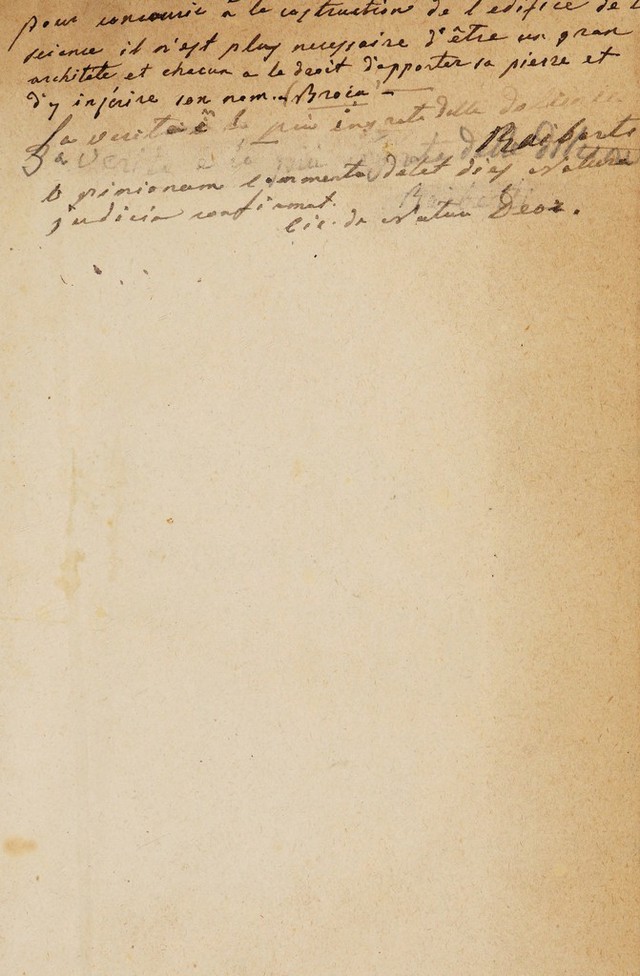 pour concourir à la costruction de l'edifice de l
science il n'est plus necessaire d'être un gran
architete et chacun a le droit d'apporter sa pierre et
d'y insérire son nom. Broca –
La verità è la più ingrata delle
Raiberti
La verità è la più ingrata delle
Opinionum commenta delet dies Natura
judicia confirmat.
Cic. de Natur Deor.